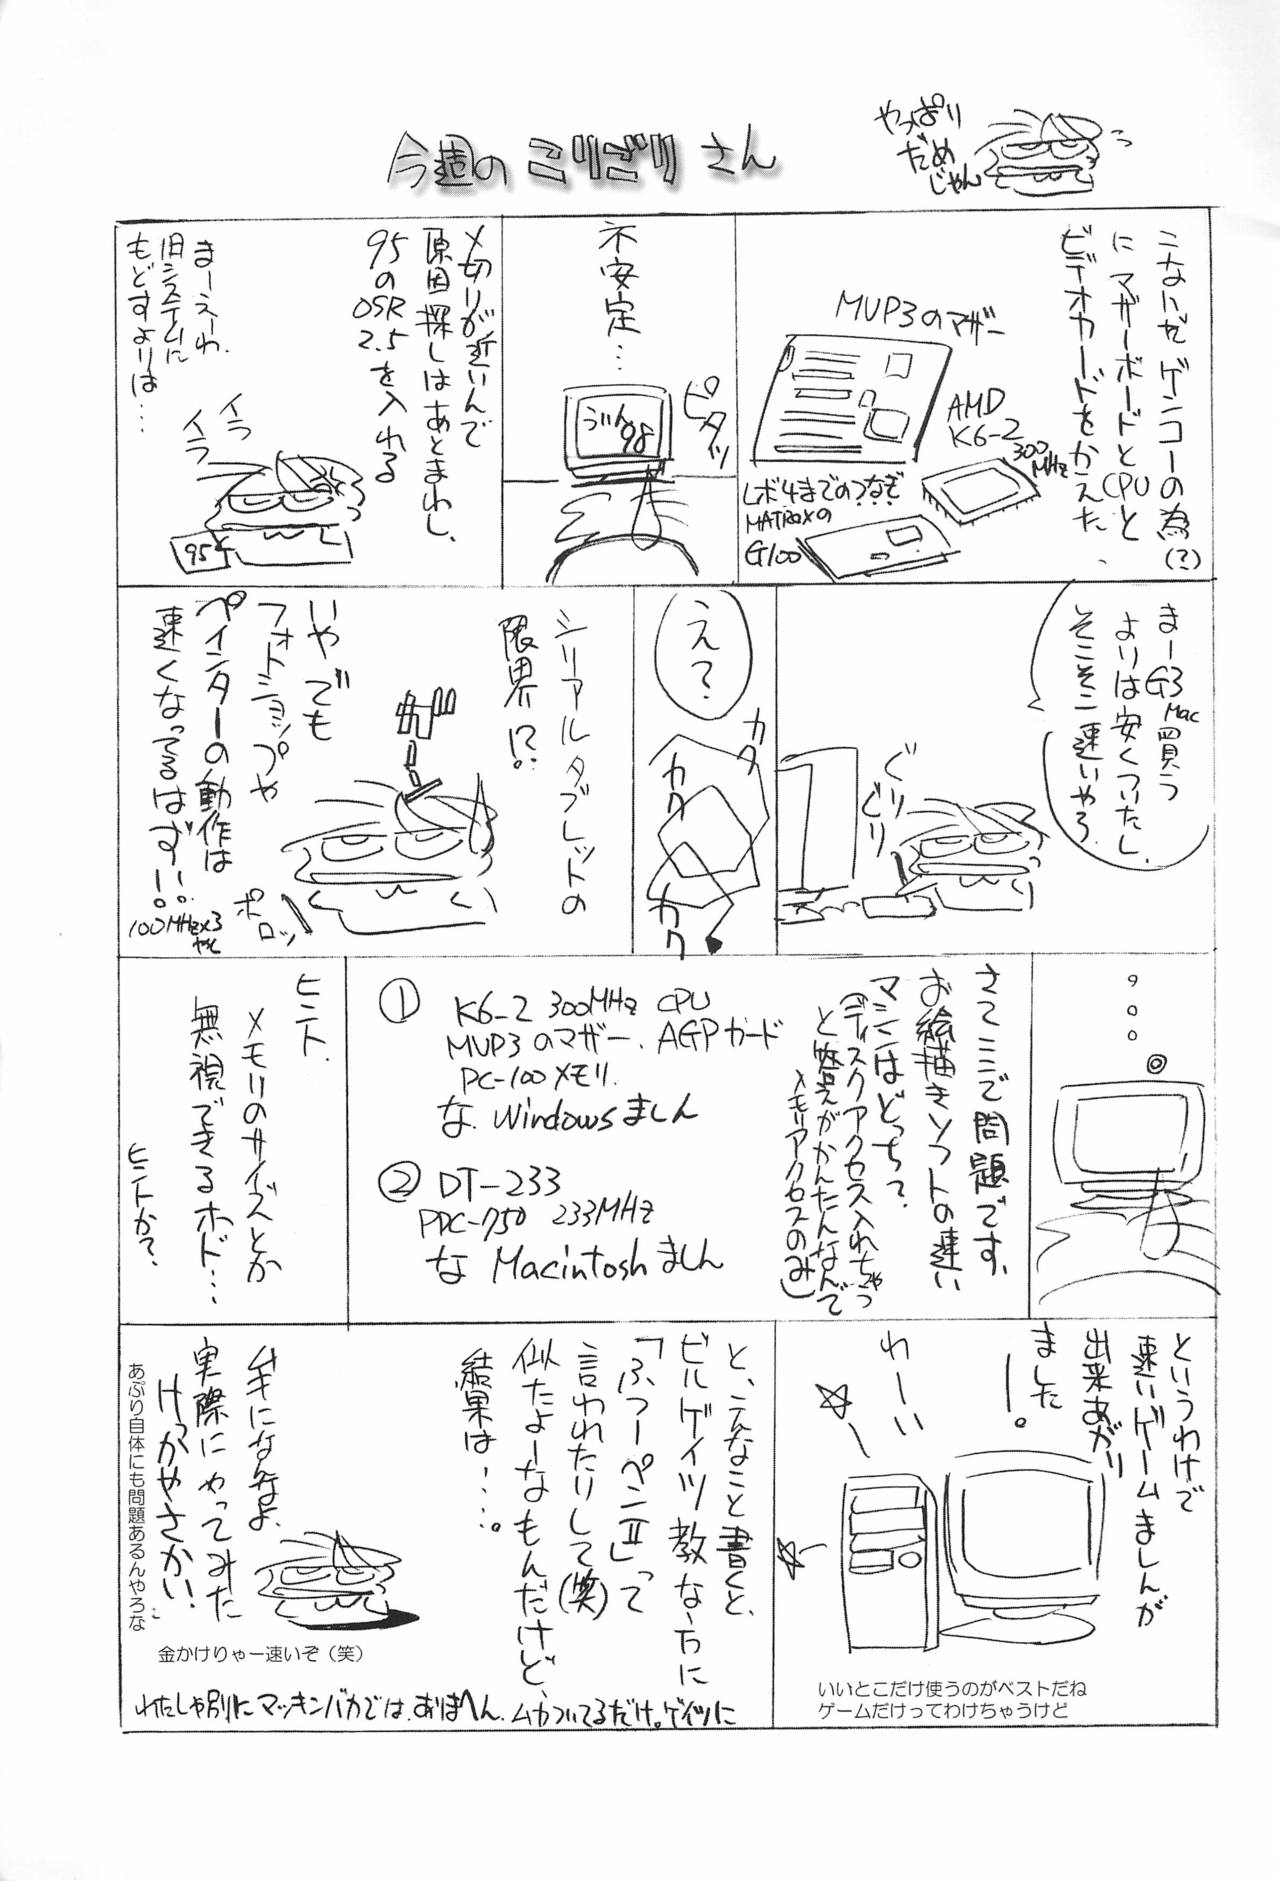 今週の こりごり さん
やっぱり
だめ
じゃん
こないだゲンコーの為(?)
にマザーボードとCPUと
ビデオカードをかえた。
MVP3のマザー
AMD
K6-2
300
MHz
レボ4までのつなぎ
MATROXの
G100
不安定…
ピタッ
うぃん
98
〆切りが近いんで
原因探しはあとまわし、
95の
OSR
2.5を入れる
まーえーわ、
旧システムに
もどすよりは…
イラ
イラ
95
まーG3 Mac買う
よりは安くついたし、
そこそこ速いやろ。
ぐりぐり
え?
カク
カク
カク
シリアルタブレットの
限界!?
ガーン
いやでも
フォトショップや
ペインターの動作は
速くなってるはず…!
100MHz×3
やし
ポロッ
。。。
さてここで問題です、
お絵描きソフトの速い
マシンはどっち?
(ディスクアクセス入れちゃう
と答えがかんたんなんで
メモリアクセスのみ)
① K6-2 300MHz CPU
MVP3のマザー、AGPカード
PC-100メモリ
な Windowsましん
② DT-233
PPC-750 233MHz
な Macintoshましん
ヒント、
メモリのサイズとか
無視できるホド…
ヒントか?
というわけで
速いゲームましんが
出来あがり
ました
ー!。
わーい
いいとこだけ使うのがベストだね
ゲームだけってわけちゃうけど
と、こんなこと書くと、
ビルゲイツ教な方に
「ふつーペンⅡ」って
言われたりして(笑)
似たよーなもんだけど、
結果は…。
ムキになんなよ、
実際にやってみた
けっかやさかい!
あぷり自体にも問題あるんやろな
金かけりゃー速いぞ(笑)
わたしゃ別にマッキンバカではありまへん。ムカついてるだけ。ゲイツに